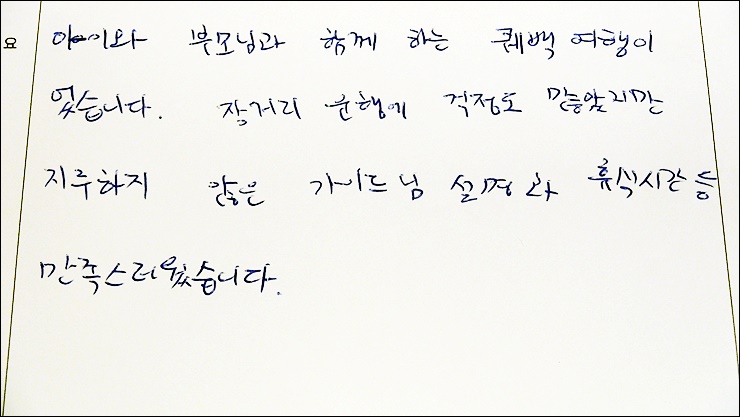 요
아이와 부모님과 함께 하는 퀘백 여행이
었습니다. 장거리 운행에 걱정도 많았지만
지루하지 않은 가이드님 설명과 휴식시간 등
만족스러웠습니다.